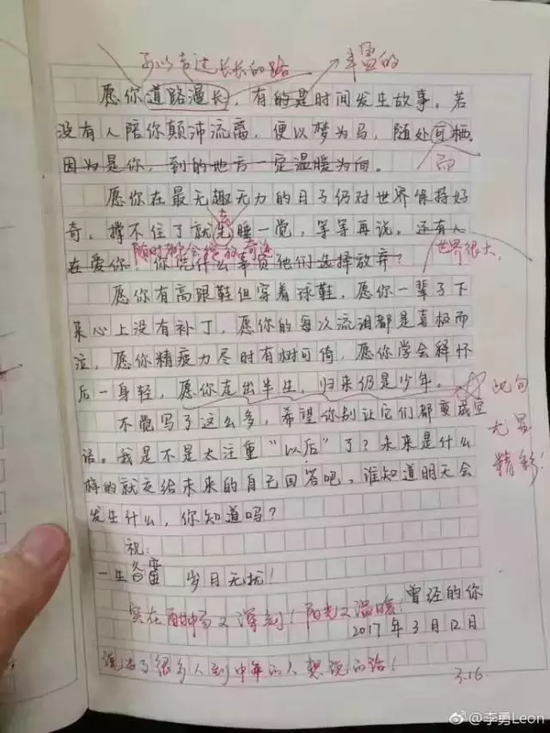 可以走过长长的路 丰盈的
愿你道路漫长,有的是时间发生故事。若
没有人陪你颠沛流离,便以梦为马,随处可栖。
因为是你,到的地方一定温暖为向。
而
愿你在最无趣无力的日子仍对世界保持好
奇,撑不住了就先睡一觉,等等再说。还有人
随时都会 世界很大,
在爱你,你凭什么辜负他们选择放弃?
愿你有高跟鞋但穿着球鞋,愿你一辈子下
来心上没有补丁,愿你的每次流泪都是喜极而
泣,愿你精疲力尽时有树可倚,愿你学会释怀
后一身轻,愿你走出半生,归来仍是少年。 此句
不觉写了这么多,希望你别让它们都变成空 尤显
话。我是不是太注重“以后”了?未来是什么 精彩!
样的就交给未来的自己回答吧,谁知道明天会
发生什么,你知道吗?
祝:
一生 岁月无扰!
实在 又深刻!阳光又温暖 曾经的你
2017年3月12日
说出了很多人到中年的人想说的话!
3.16
@李勇Leon